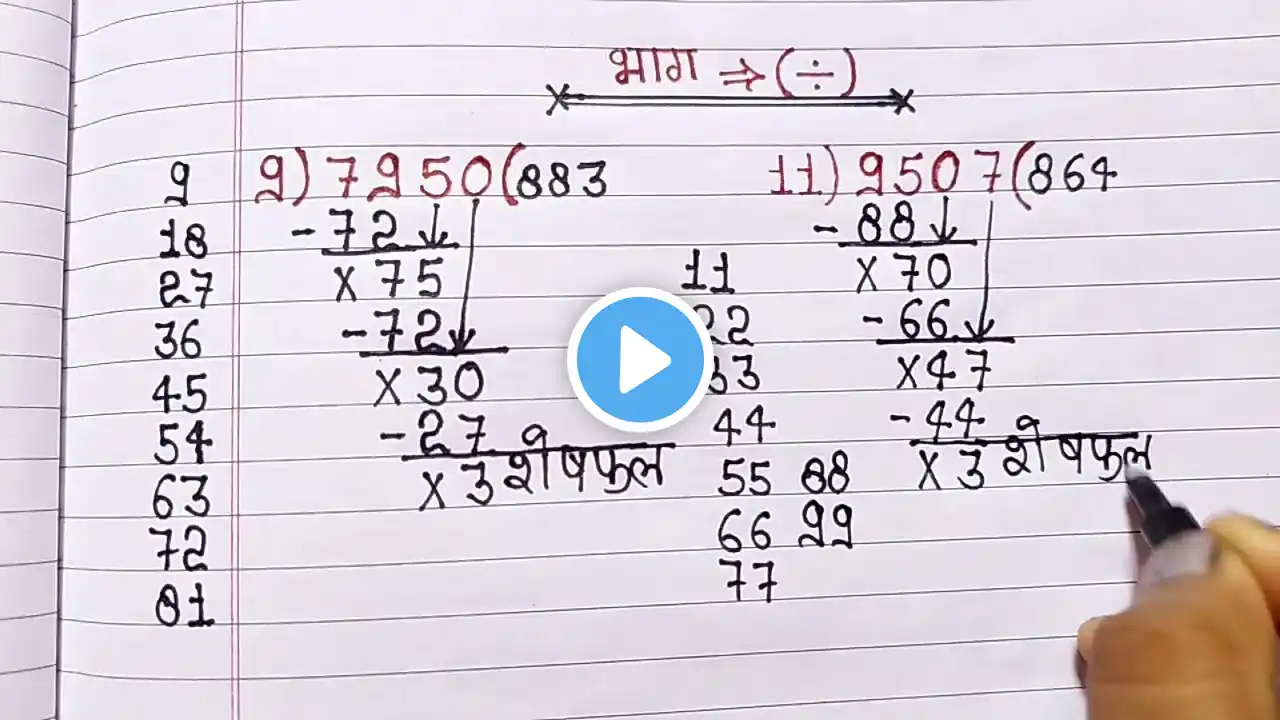 भाग ⇒ (÷)
9
18
27
36
45
54
63
72
81
9) 7950 (883
-72
x 75
-72
x 30
-27
x 3 शेषफल
11
22
33
44
55 88
66 99
77
11) 9507 (864
-88
x 70
-66
x 47
-44
x 3 शेषफल